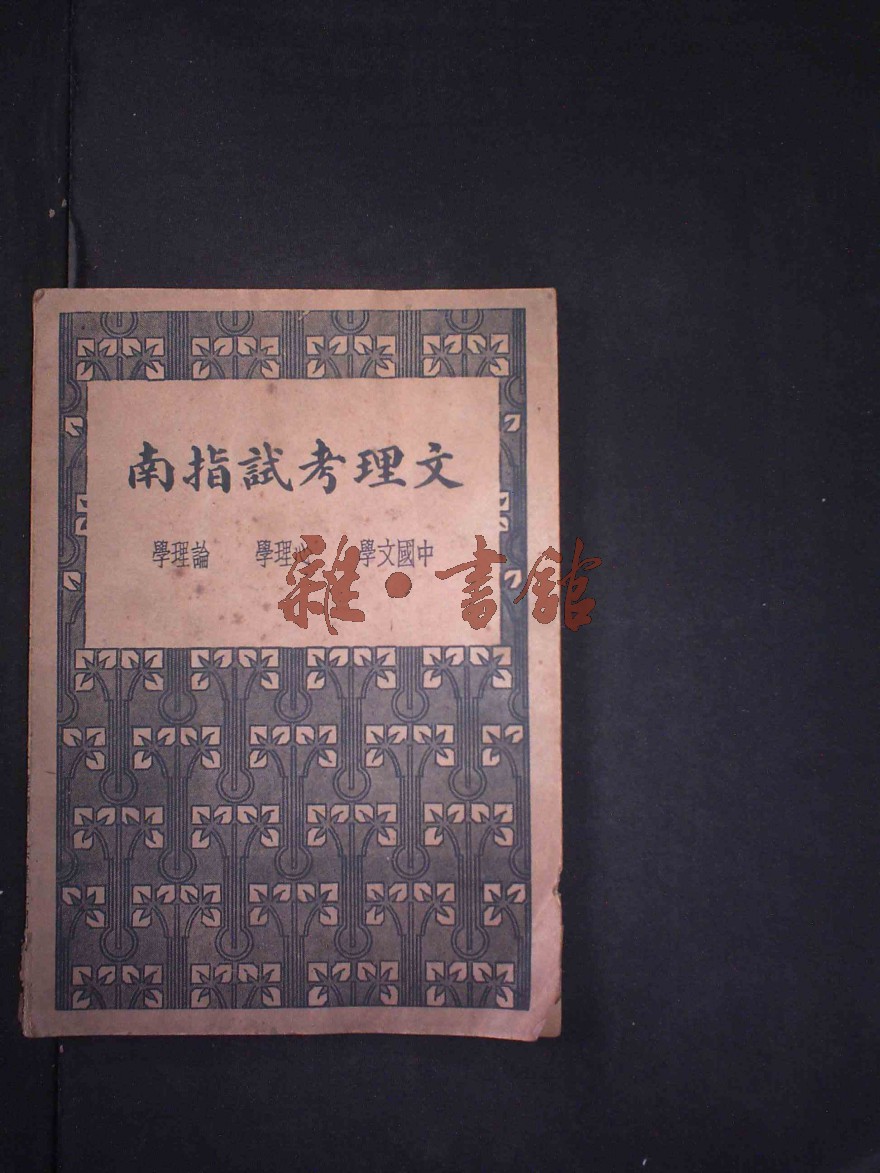 文理考試指南
中國文學 心理學 論理學
雜·書館